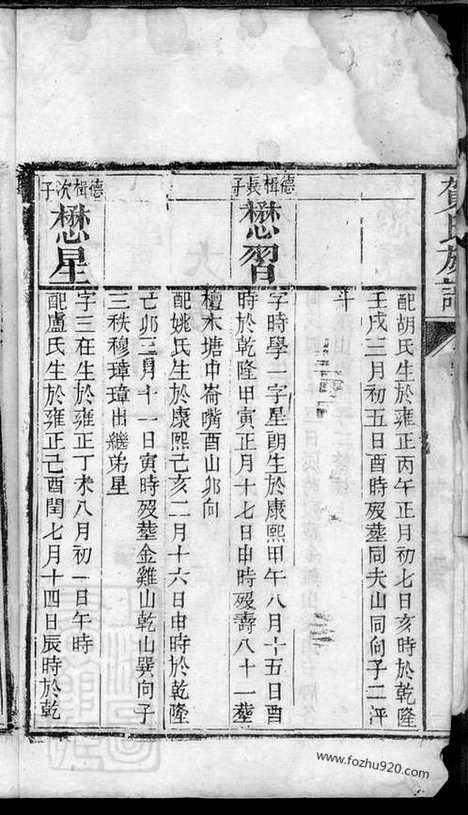 賀氏族譜
配胡氏生於雍正丙午正月初七日亥時於乾隆
壬戌三月初五日酉時歿塟同夫山同向子二評
斗
德楫長子
懋習
字時學一字星朗生於康熙甲午八月十五日酉
時於乾隆甲寅正月十七日申時歿壽八十一塟
檀木塘中崙嘴酉山卯向
配姚氏生於康熙己亥二月十六日申時於乾隆
己卯三月十一日寅時歿塟金雞山乾山巽向子
三秩穆瑋瑋出繼弟星
德楫次子
懋星
字三在生於雍正丁未八月初一日午時
配盧氏生於雍正己酉閏七月十四日辰時於乾
www.fozhu920.com